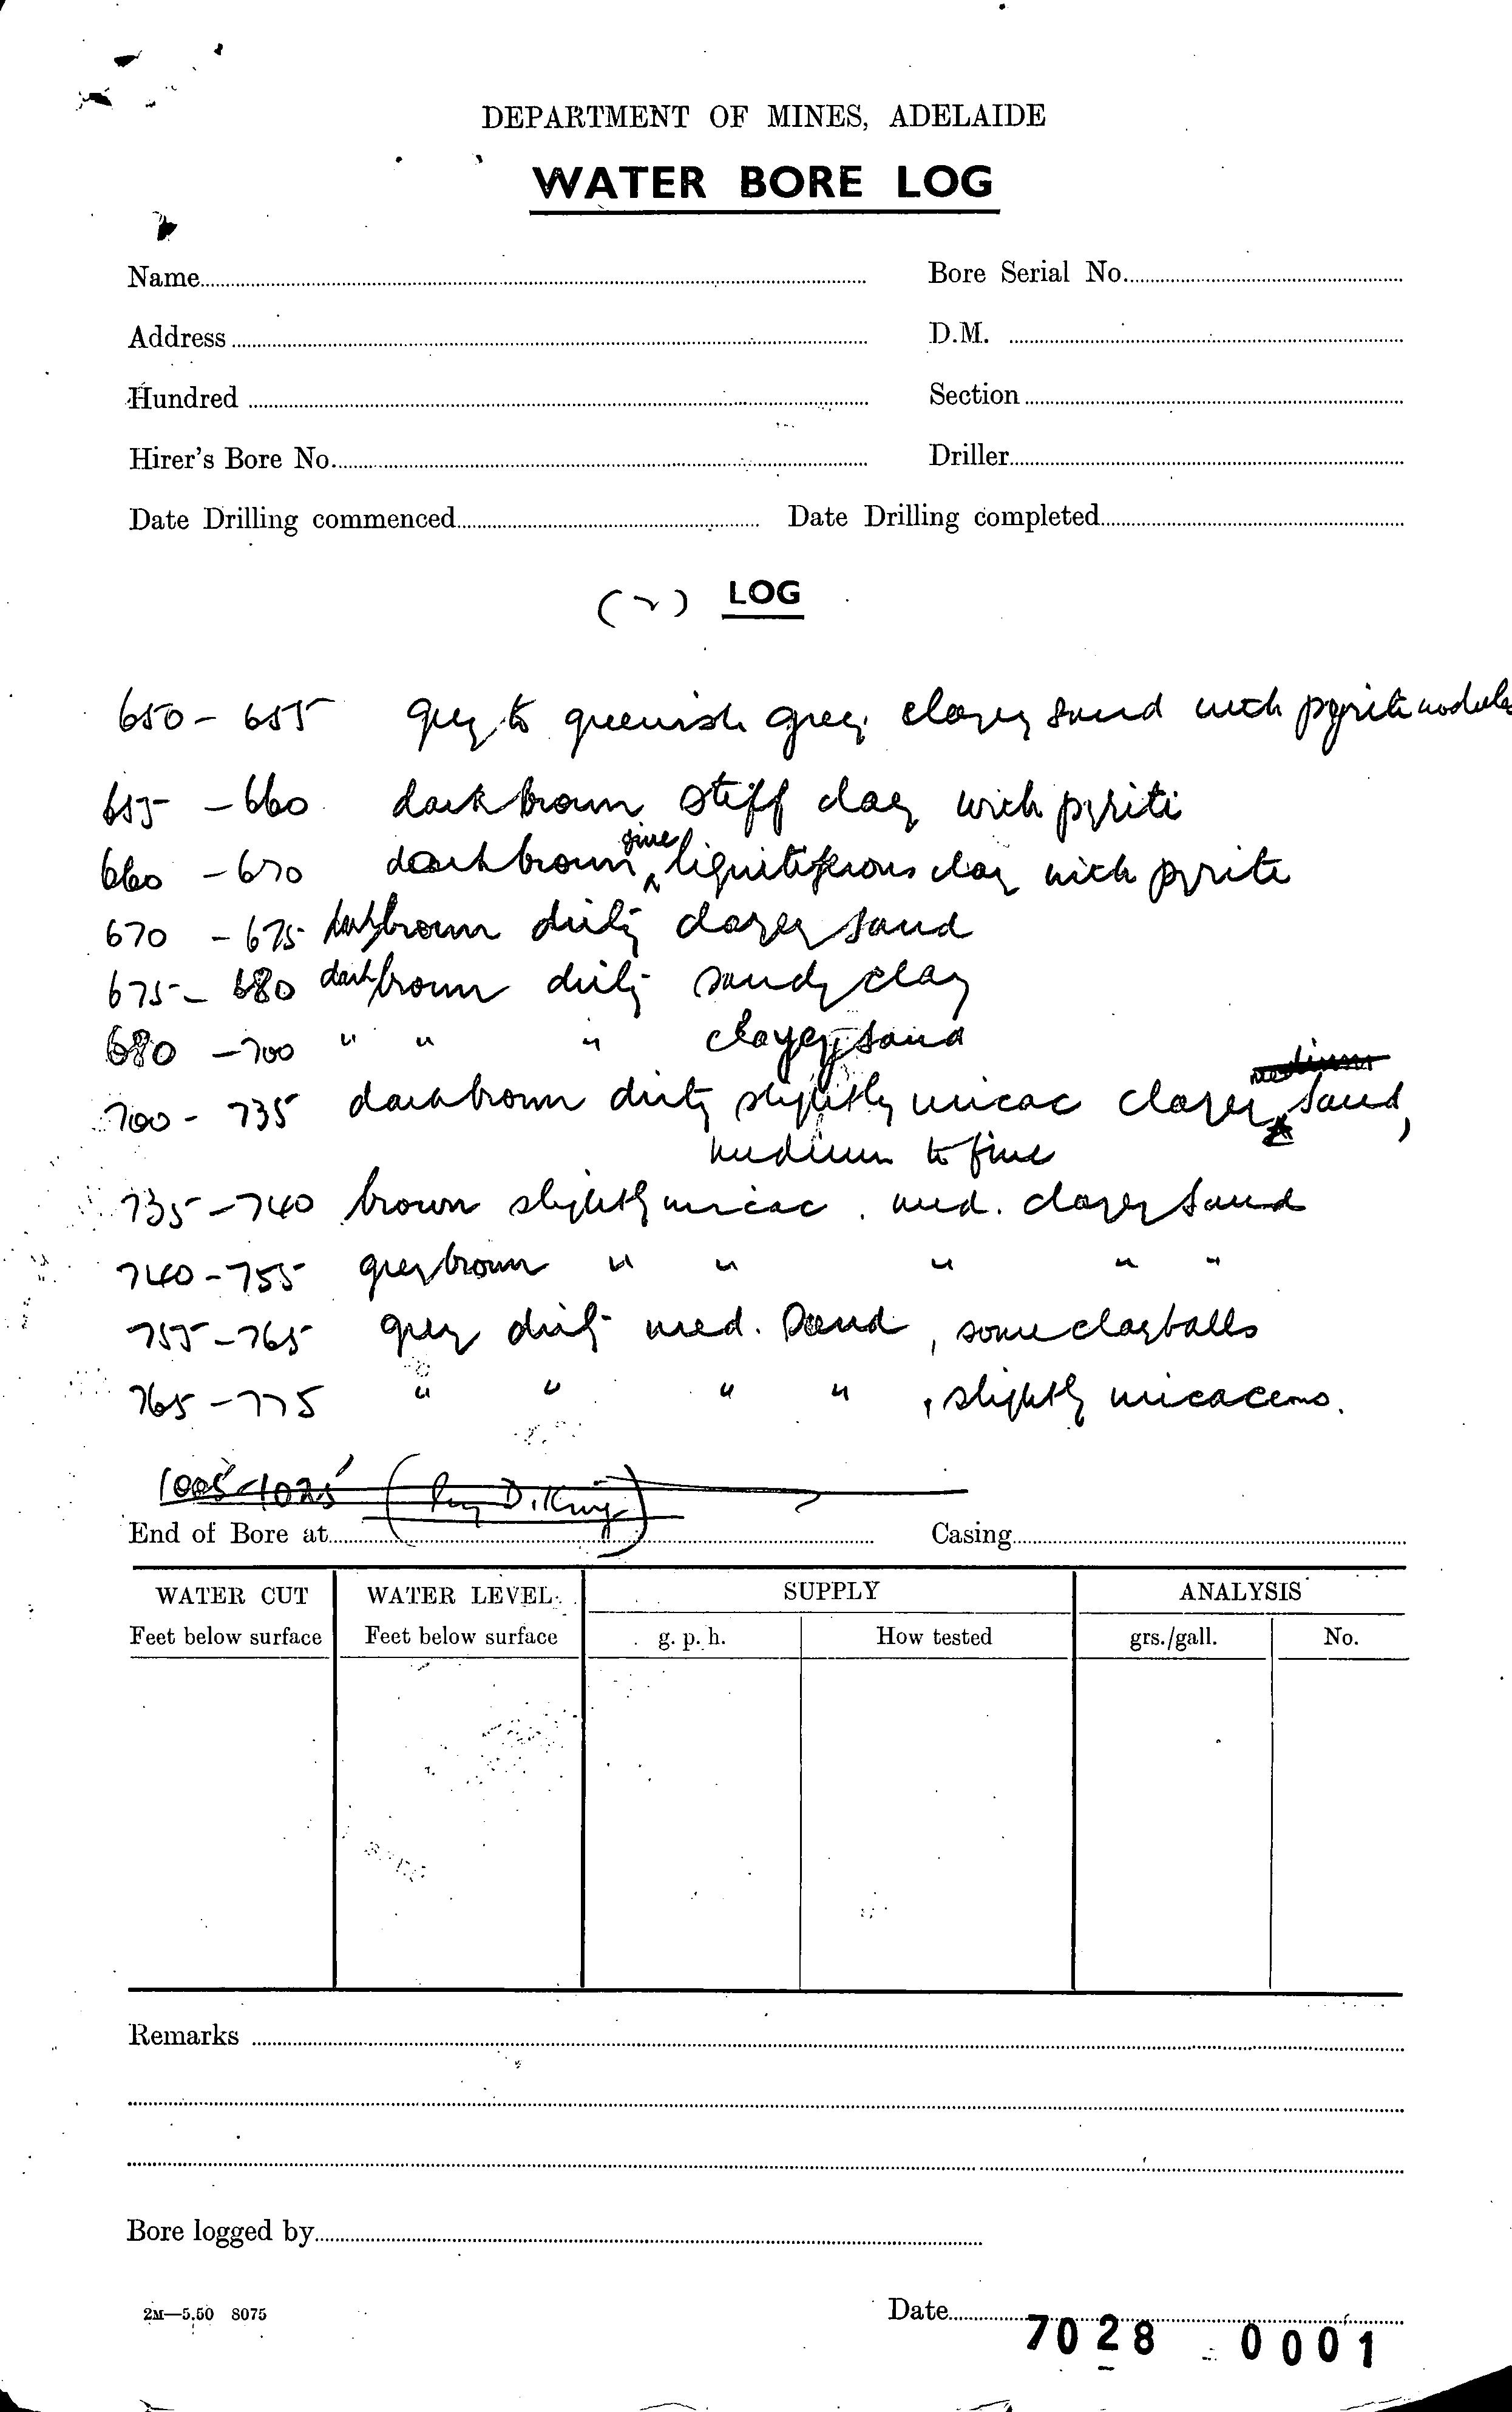 DEPARTMENT OF MINES, ADELAIDE
WATER BORE LOG
Name Bore Serial No.
Address D.M.
Hundred Section
Hirer's Bore No. Driller
Date Drilling commenced Date Drilling completed
(2) LOG
650 - 655 grey to greenish grey clayey sand with pyrite nodules
655 - 660 dark brown stiff clay with pyrite
fine
660 - 670 dark brown lignitiferous clay with pyrite
670 - 675 dark brown dirty clayey sand
675 - 680 dark brown dirty sandy clay
680 - 700 " " " clayey sand
medium
700 - 735 dark brown dirty slightly micac clayey sand,
medium to fine
735 - 740 brown slightly micac. med. clayey sand
740 - 755 grey brown " " " " "
755 - 765 grey dirty med. sand, some clayballs
765 - 775 " " " " , slightly micaceous.
1005-1025 ( D. King)
End of Bore at Casing
WATER CUT WATER LEVEL SUPPLY ANALYSIS
Feet below surface Feet below surface g. p. h. How tested grs./gall. No.
Remarks
Bore logged by
2M—5.50 8075 Date
7028 0001